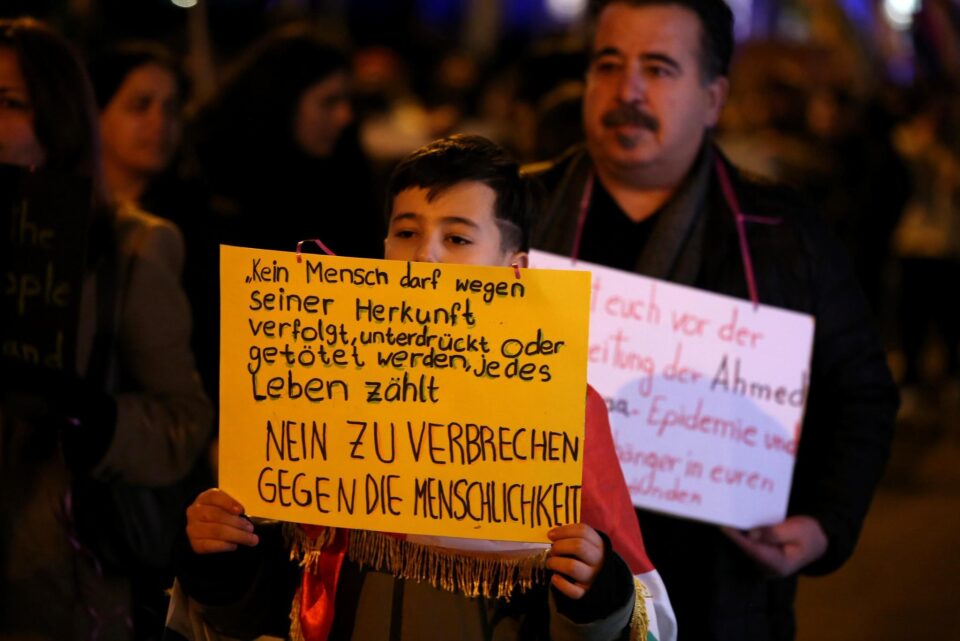 the
ople
and
„Kein Mensch darf wegen
seiner Herkunft
verfolgt, unterdrückt oder
getötet werden, jedes
Leben zählt
NEIN ZU VERBRECHEN
GEGEN DIE MENSCHLICHKEIT
euch vor der
eitung der Ahmed
a - Epidemie und
hänger in euren